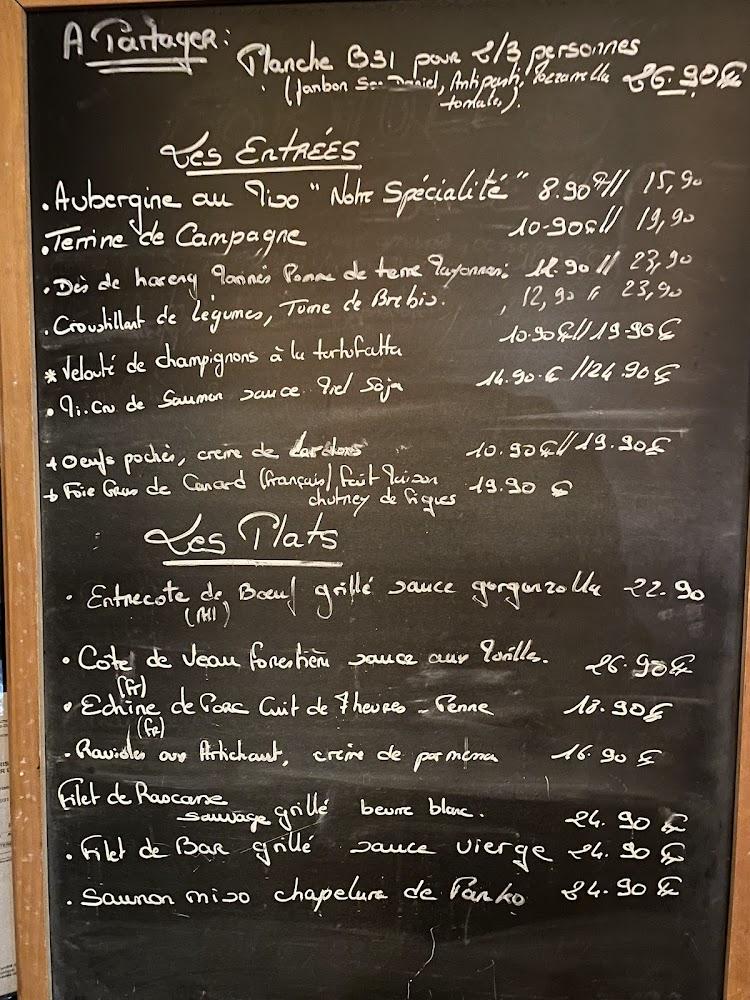 A Partager:
Planche B31 pour 2/3 personnes
(Jambon San Daniel, Antipasti, Mozzarella 26.90€
tomates).
Les Entrées
. Aubergine au Miso "Notre Spécialité" 8.90€// 15,90
. Terrine de Campagne 10.90€// 19,90
. Dés de hareng Marinés Pomme de terre 12.90 // 23,90
. Croustillant de légumes, Tome de Brebis. 12,90 // 23,90
* Velouté de champignons à la tartufatta 10.90€//19.90€
. Mi.Cru de Saumon sauce Miel Soja 14.90.€ //24.90€
+ Oeufs pochés, crème de Lardons 10.90€//19.90€
+ Foie Gras de Canard (français) fait Maison 19.90 €
chutney de figues
Les Plats
. Entrecote de Bœuf grillé sauce gorgonzolla 22.90
(All)
. Côte de Veau forestière sauce aux Morilles. 26.90€
(Fr)
. Echine de Porc Cuit de 7 heures - Penne 18.90€
(FR)
. Ravioles aux Artichaut, crème de parmesan 16.90 €
Filet de Rascasse
sauvage grillé beurre blanc. 24.90 €
. Filet de Bar grillé sauce vierge 24.90 €
. Saumon miso chapelure de Panko 24.90 €